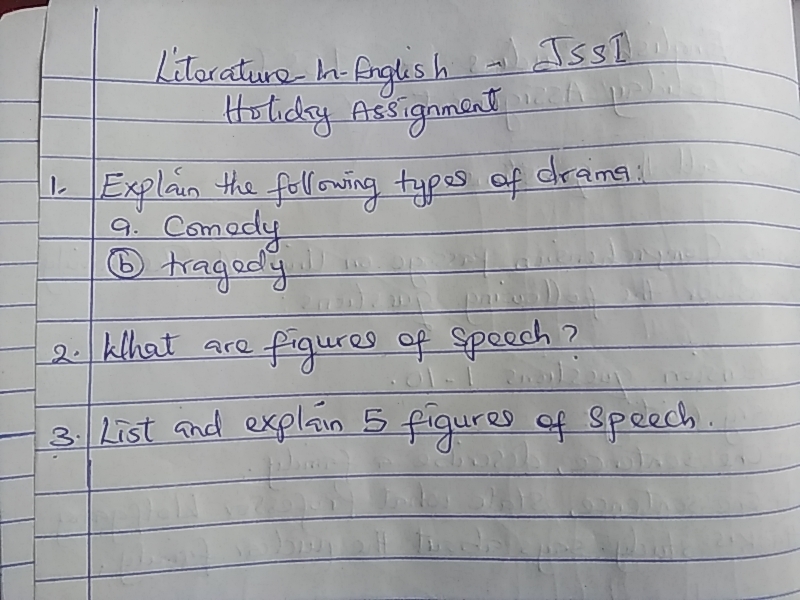 Literature-In-English - JSS1
Holiday Assignment
1. Explain the following types of drama:
a. Comedy
(b) tragedy
2. What are figures of speech?
3. List and explain 5 figures of speech.